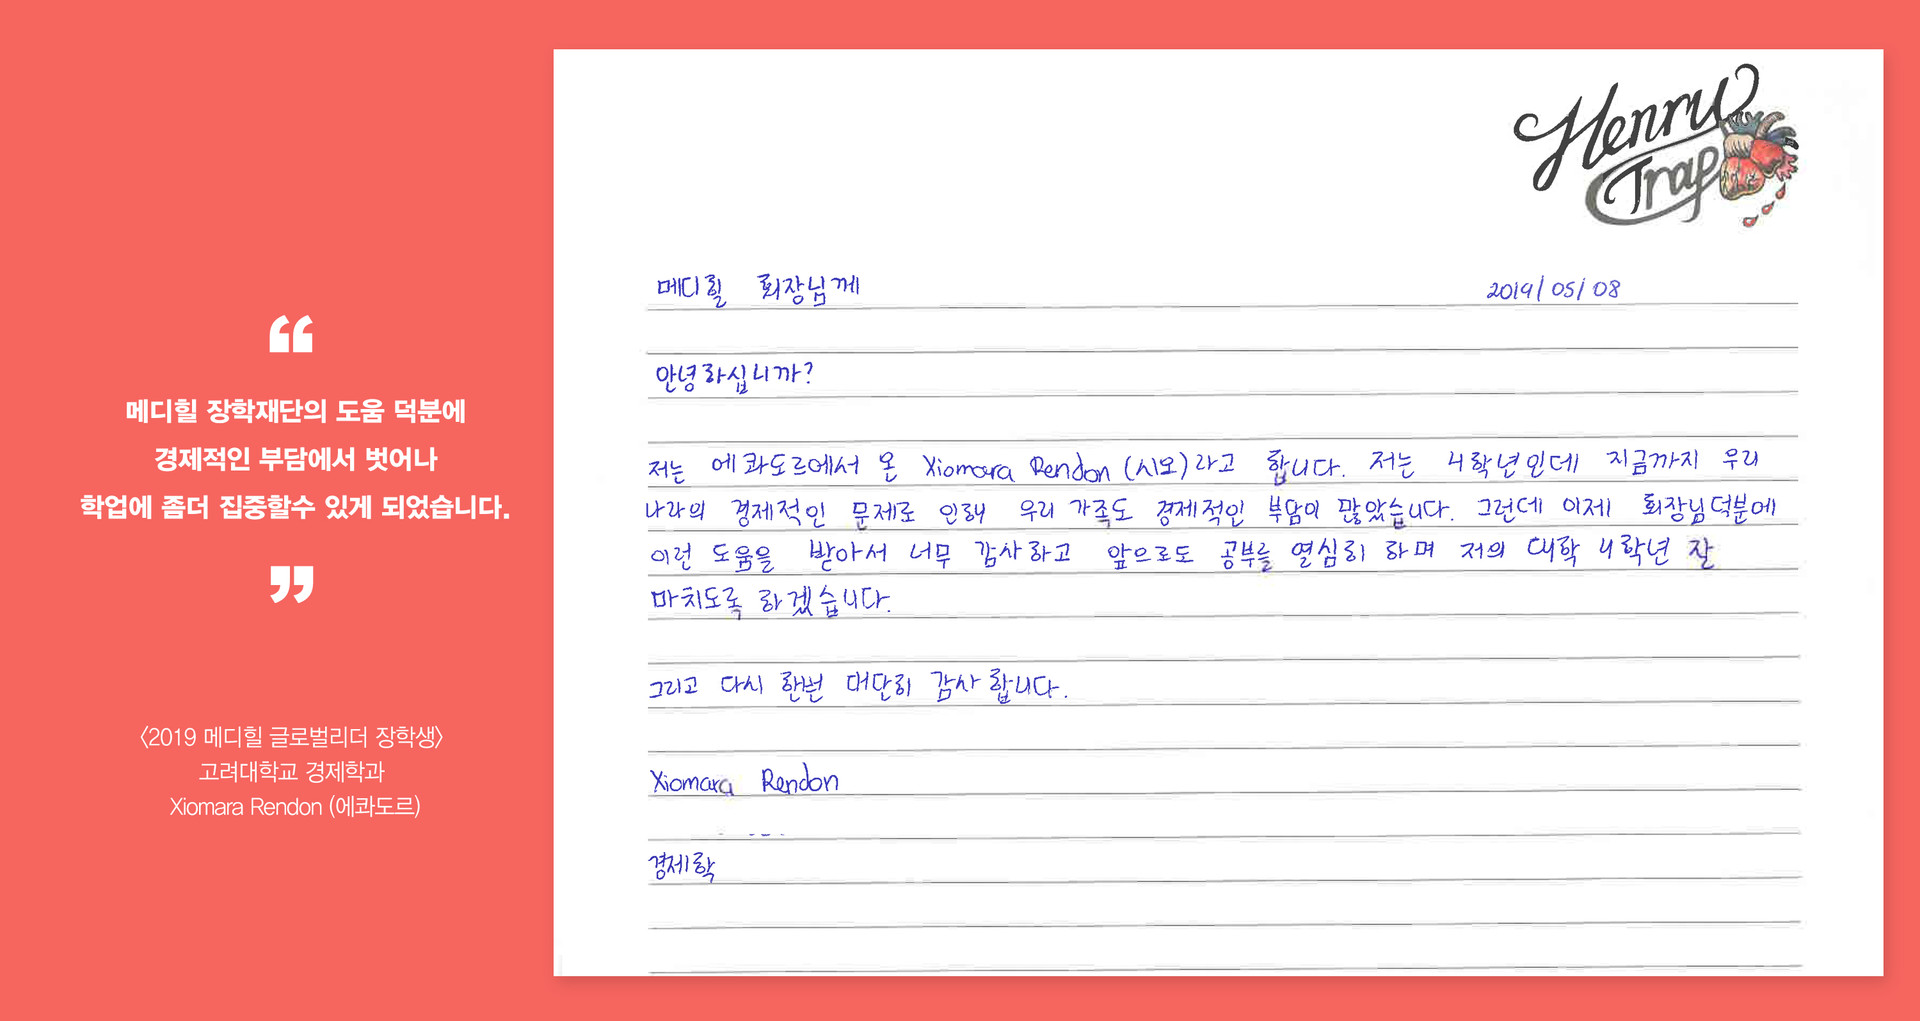 “
메디힐 장학재단의 도움 덕분에
경제적인 부담에서 벗어나
학업에 좀더 집중할수 있게 되었습니다.
”
〈2019 메디힐 글로벌리더 장학생〉
고려대학교 경제학과
Xiomara Rendon (에콰도르)
Henru
Trap
메디힐 회장님께 2019/05/08
안녕하십니까?
저는 에콰도르에서 온 Xiomara Rendon (시모)라고 합니다. 저는 4학년인데 지금까지 우리
나라의 경제적인 문제로 인해 우리 가족도 경제적인 부담이 많았습니다. 그런데 이제 회장님덕분에
이런 도움을 받아서 너무 감사하고 앞으로도 공부를 열심히 하며 저의 대학 4학년 잘
마치도록 하겠습니다.
그리고 다시 한번 대단히 감사합니다.
Xiomara Rendon
경제학